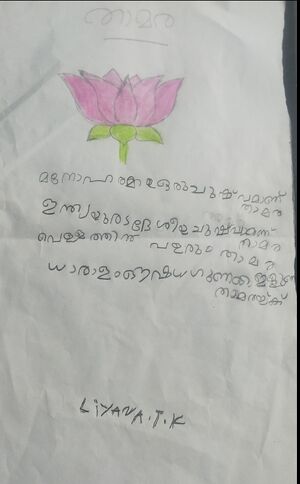 താമര
മനോഹരമായ ഒരു പുഷ്പമാണ്
താമര
ഇന്ത്യയുടെ ദേശീയ പുഷ്പമാണ്
താമര
വെള്ളത്തിൽ വളരും താമര
ധാരാളം ഔഷധ ഗുണങ്ങൾ
താമരയ്ക്ക്
LIYANA.T.K